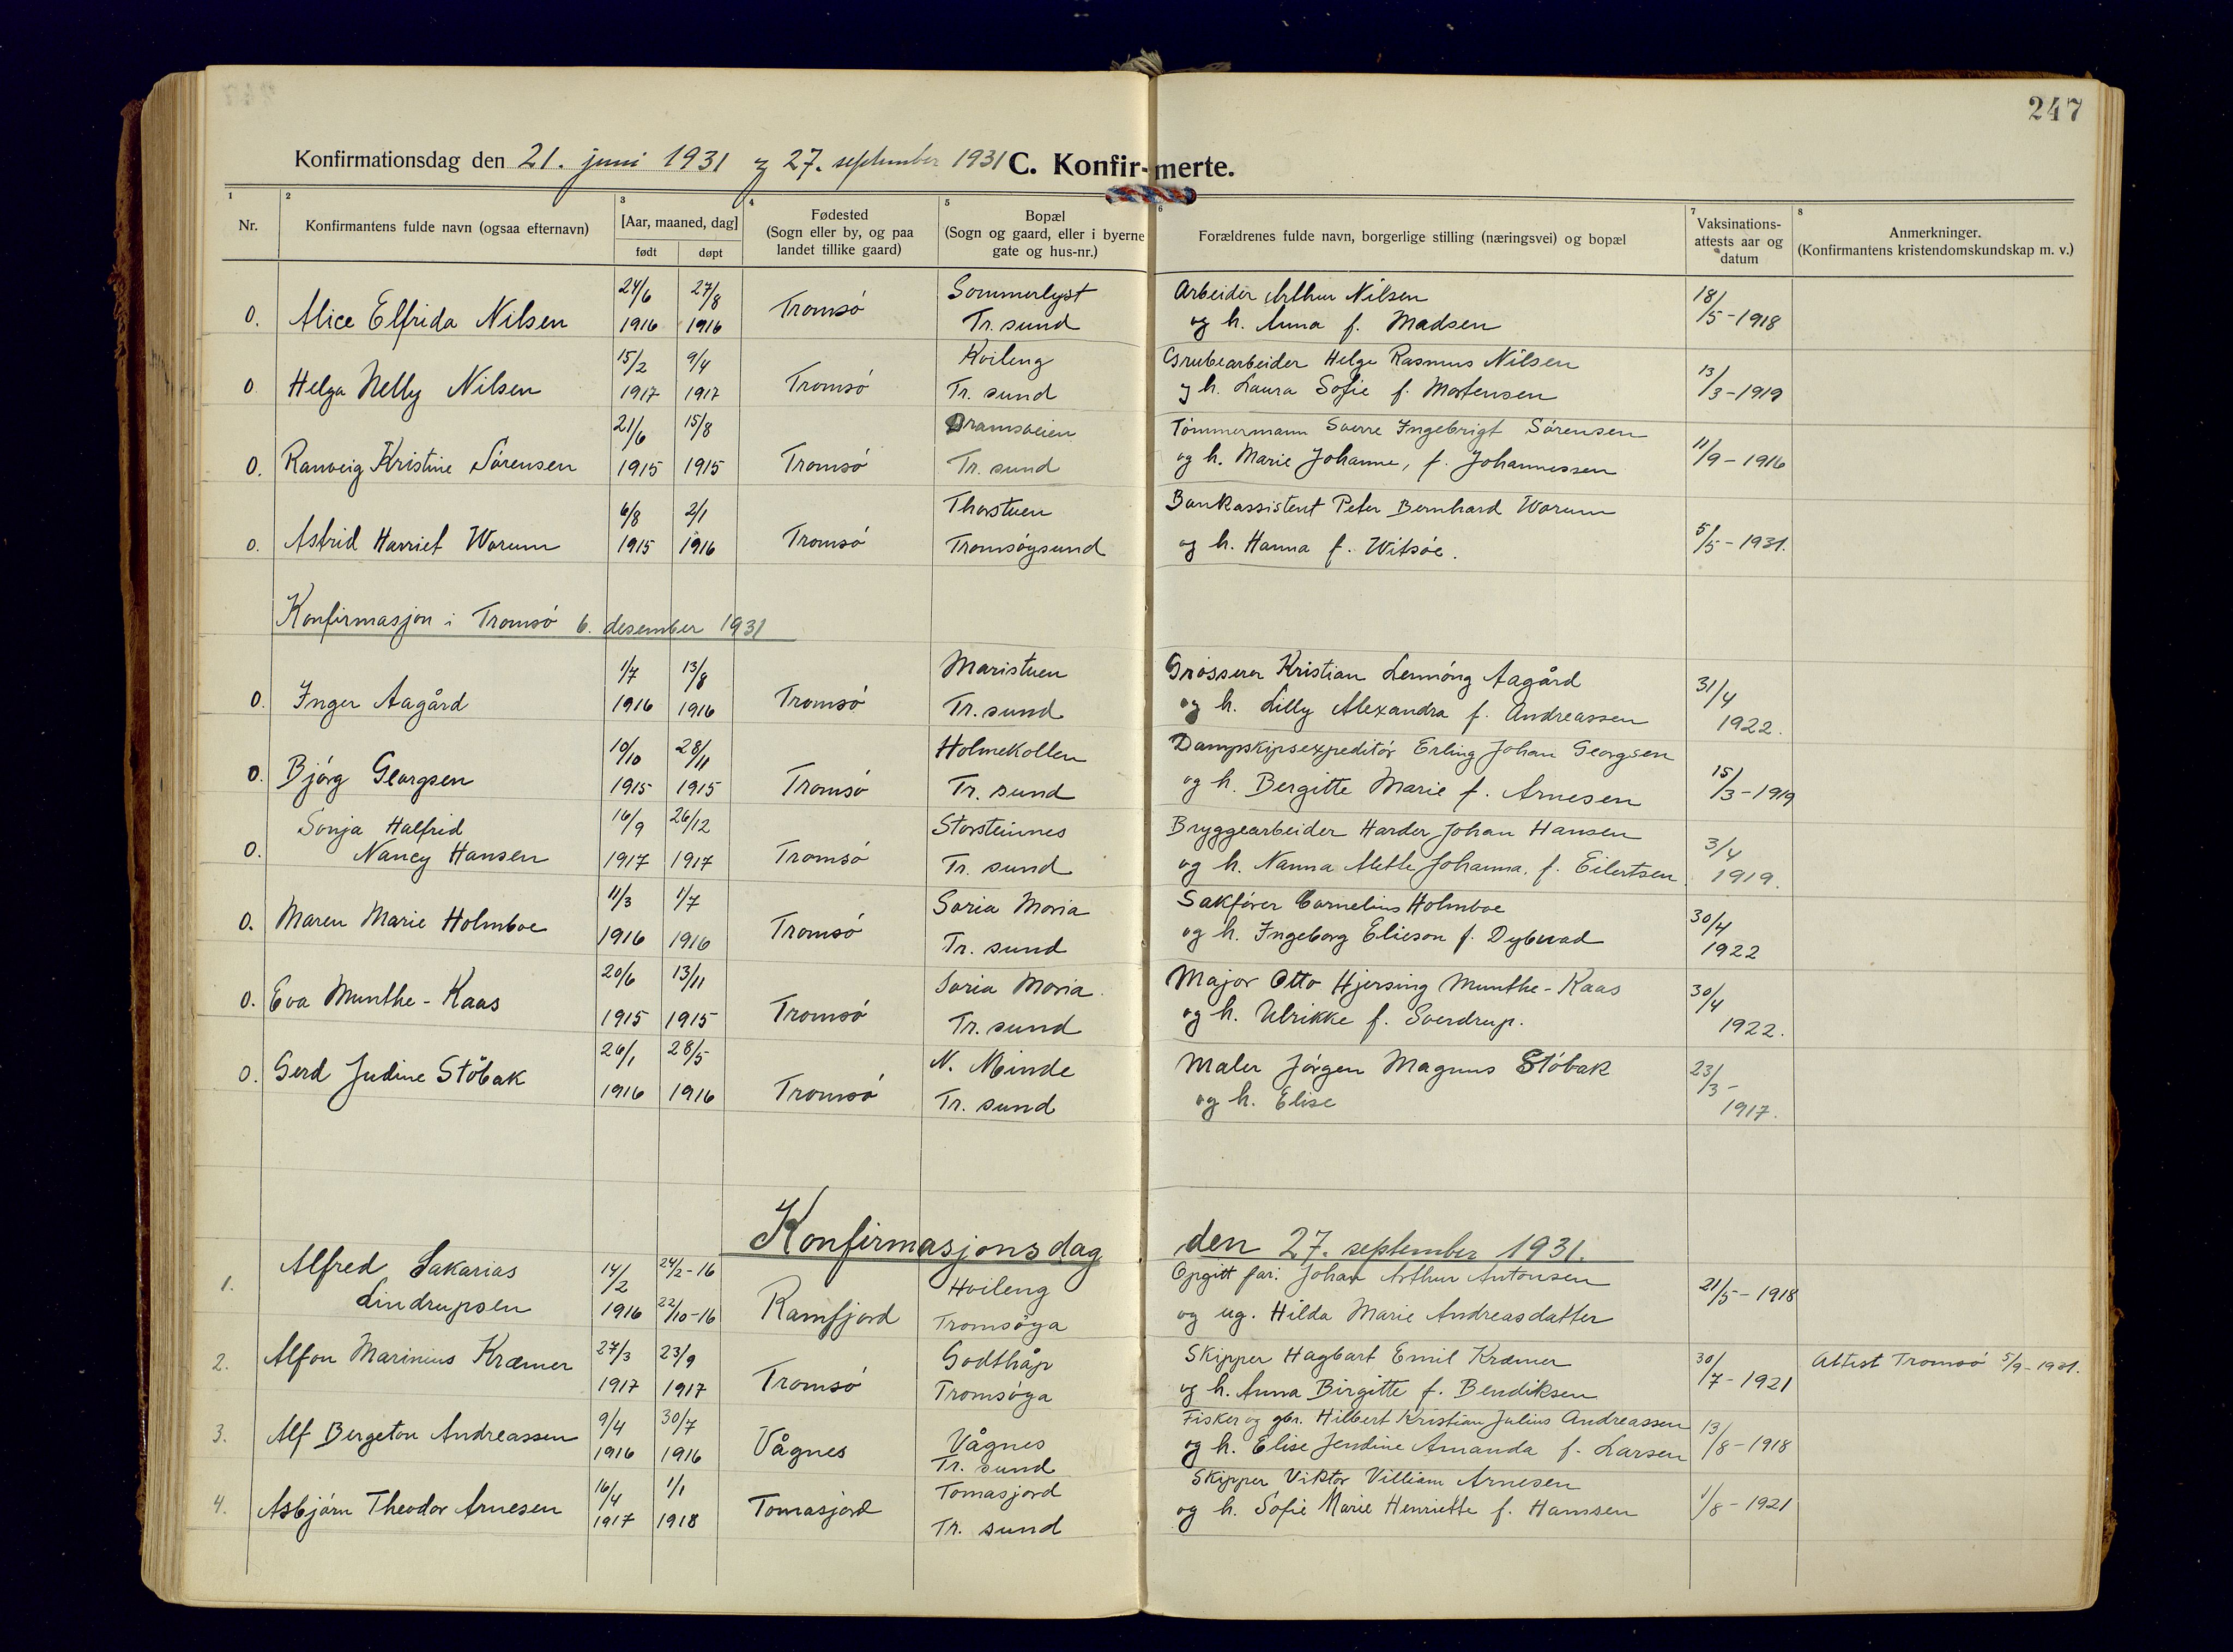 247
Konfirmationsdag den 21. juni 1931 og 27. september 1931 C. Konfirmerte.
1 2 3 4 5 6 7 8
Nr.
Konfirmantens fulde navn (ogsaa efternavn)
[Aar, maaned, dag]
født døpt
Fødested
(Sogn eller by, og paa
landet tillike gaard)
Bopæl
(Sogn og gaard, eller i byerne
gate og hus-nr.)
Forældrenes fulde navn, borgerlige stilling (næringsvei) og bopæl
Vaksinations-
attests aar og
datum
Anmerkninger.
(Konfirmantens kristendomskundskap m. v.)
24/6 27/8 Sommerlyst Arbeider Arthur Nilsen 18/5-1918
0. Alice Elfrida Nilsen 1916 1916 Tromsö Tr. sund og h. Anna f. Madsen
15/2 9/4 Kvileng Grubearbeider Helge Rasmus Nilsen 13/3-1919
0 Helga Nelly Nilsen 1917 1917 Tromsö Tr. sund og h. Laura Sofie f. Mortensen
21/6 15/8 Dramsveien Tömmermann Sverre Ingebrigt Sörensen 11/9-1916
0. Ranveig Kristine Sörensen 1915 1915 Tromsö Tr. sund og h. Marie Johanne, f. Johannessen
6/8 2/1 Thorstuen Bankassistent Peter Bernhard Worum 5/5-1931.
0. Astrid Harriet Worum 1915 1916 Tromsö Tromsöysund og h. Hanna f. Witsöe.
Konfirmasjon i Tromsö 6. desember 1931
1/7 13/8 Maristuen Grosserer Kristian Lenning Aagård 31/4
0. Inger Aagård 1916 1916 Tromsö Tr. sund og h. Lilly Alexandra f. Andreassen 1922.
10/10 28/11 Holmekollen Dampskipsexpeditör Erling Johan Georgsen 15/3-1919
0. Björg Georgsen 1915 1915 Tromsö Tr. sund og h. Bergitte Marie f. Arnesen
Sonja Halfrid 16/9 26/12 Storsteinnes Bryggearbeider Harder Johan Hansen 3/4
0. Nancy Hansen 1917 1917 Tromsö Tr. sund og h. Nanna Alette Johanna, f. Eilertsen 1919.
11/3 1/7 Soria Moria Sakförer Cornelius Holmboe 30/4
0. Maren Marie Holmboe 1916 1916 Tromsö Tr. sund og h. Ingeborg Elieson f. Dybwad 1922
20/6 13/11 Soria Moria Major Otto Hjersing Munthe-Kaas 30/4
0. Eva Munthe-Kaas 1915 1915 Tromsö Tr. sund og h. Ulrikke f. Sverdrup. 1922.
26/1 28/5 N. Minde Maler Jörgen Magnus Stöbak 23/3-
0. Gerd Judine Stöbak 1916 1916 Tromsö Tr. sund og h. Elise 1917.
Konfirmasjonsdag den 27. september 1931.
Alfred Sakarias 14/2 24/2-16 Hvileng Opgitt far: Johan Arthur Antonsen 21/5-1918
1. Lindrupsen 1916 22/10-16 Ramfjord Tromsöya og ug. Hilda Marie Andreasdatter
2. Alfon Marinius Kræmer 27/3 23/9 Godthåp Skipper Hagbart Emil Kræmer 30/7-1921 Attest Tromsö 5/9-1931.
1917 1917 Tromsö Tromsöya og h. Anna Birgitte f. Bendiksen
9/4 30/7 Fisker og gbr. Hilbert Kristian Julius Andreassen 13/8-1918
3. Alf Bergeton Andreassen 1916 1916 Vågnes Vågnes og h. Elise Jendine Amanda f. Larsen
Tr. sund
16/4 1/1 Tomasjord Skipper Viktor Villiam Arnesen 1/8-1921
4. Asbjörn Theodor Arnesen 1917 1918 Tomasjord Tr. sund og h. Sofie Marie Henriette f. Hanssen